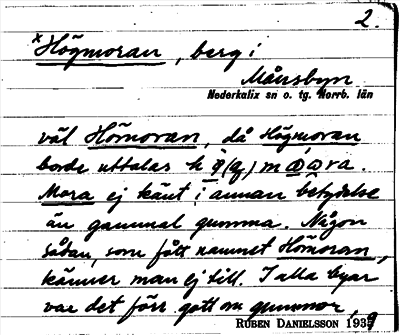 2.
× Högmoran, berg i
Månsbyn
Nederkalix sn o. tg. Norrb. län
väl Hömoran, då Högmoran
borde uttalas h
Mora ej känt i annan betydelse
än gammal gumma. Någon
sådan, som fått namnet Hömoran,
känner man ej till. I alla byar
var det förr gott om gummor.
RUBEN DANIELSSON 1939